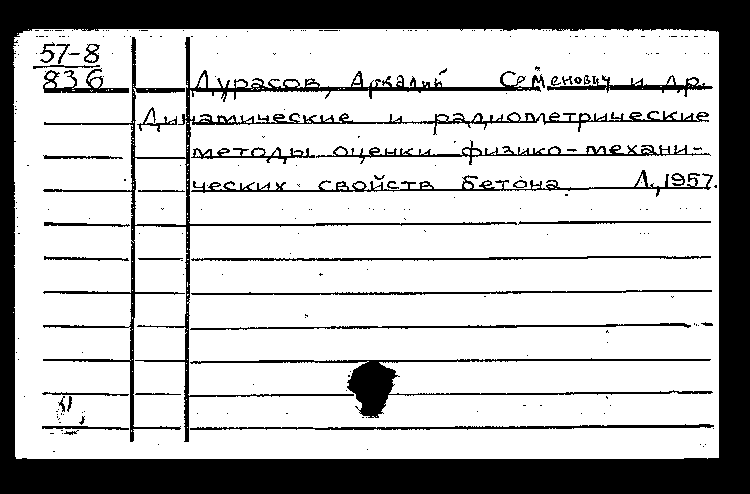 57-8
836
Дурасов, Аркадий Семенович и др.
Динамические и радиометрические
методы оценки физико-механи-
ческих свойств бетона. Л., 1957.